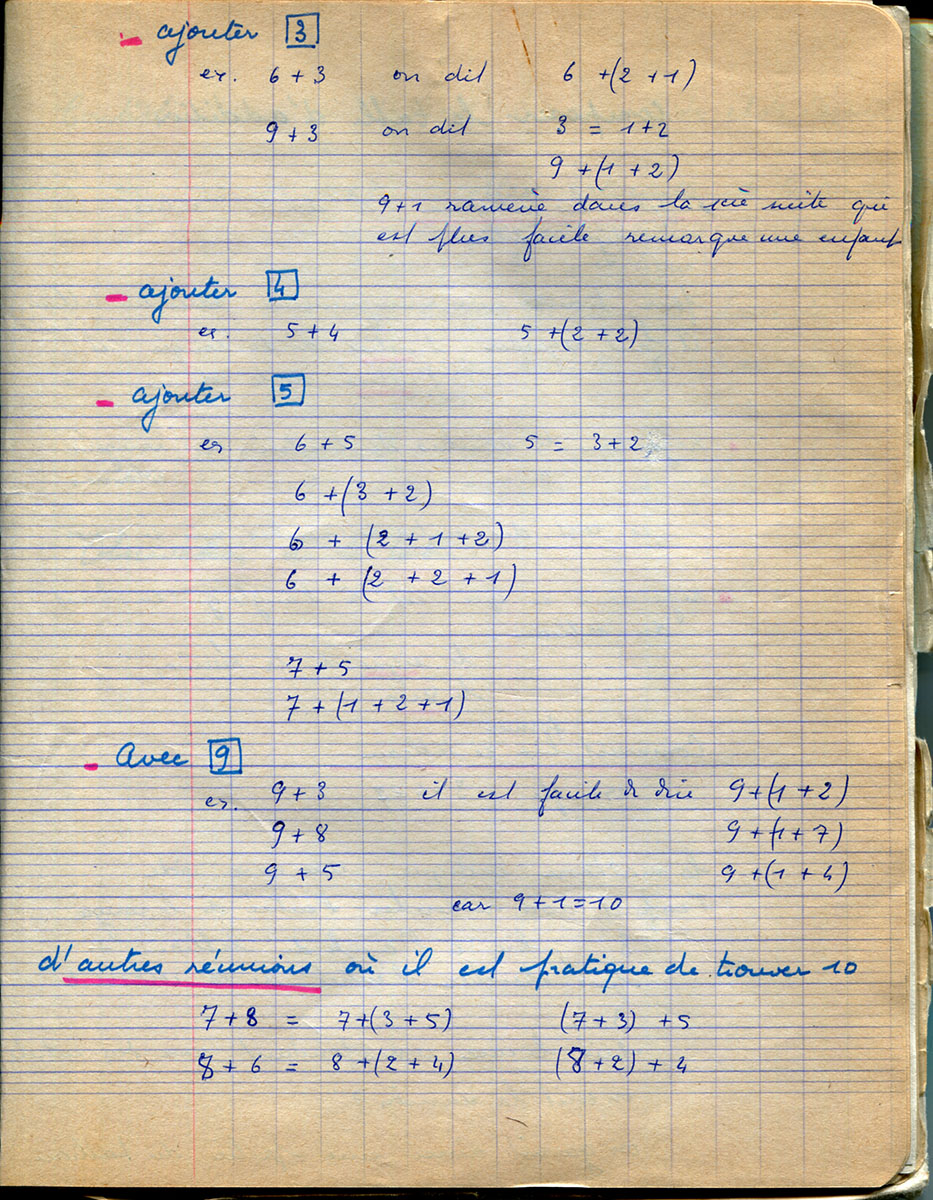 - ajouter 3
ex. 6 + 3 on dit 6 + (2 + 1)
9 + 3 on dit 3 = 1 + 2
9 + (1 + 2)
9 + 1 ramène dans la suite qui
est plus facile remarque une enfant
- ajouter 4
ex. 5 + 4 5 + (2 + 2)
- ajouter 5
ex 6 + 5 5 = 3 + 2
6 + (3 + 2)
6 + (2 + 1 + 2)
6 + (2 + 2 + 1)
7 + 5
7 + (1 + 2 + 1)
- Avec 9
ex. 9 + 3 il est facile de dire 9 + (1 + 2)
9 + 8 9 + (1 + 7)
9 + 5 9 + (1 + 4)
car 9 + 1 = 10
d'autres réunions où il est pratique de trouver 10
7 + 8 = 7 + (3 + 5) (7 + 3) + 5
8 + 6 = 8 + (2 + 4) (8 + 2) + 4